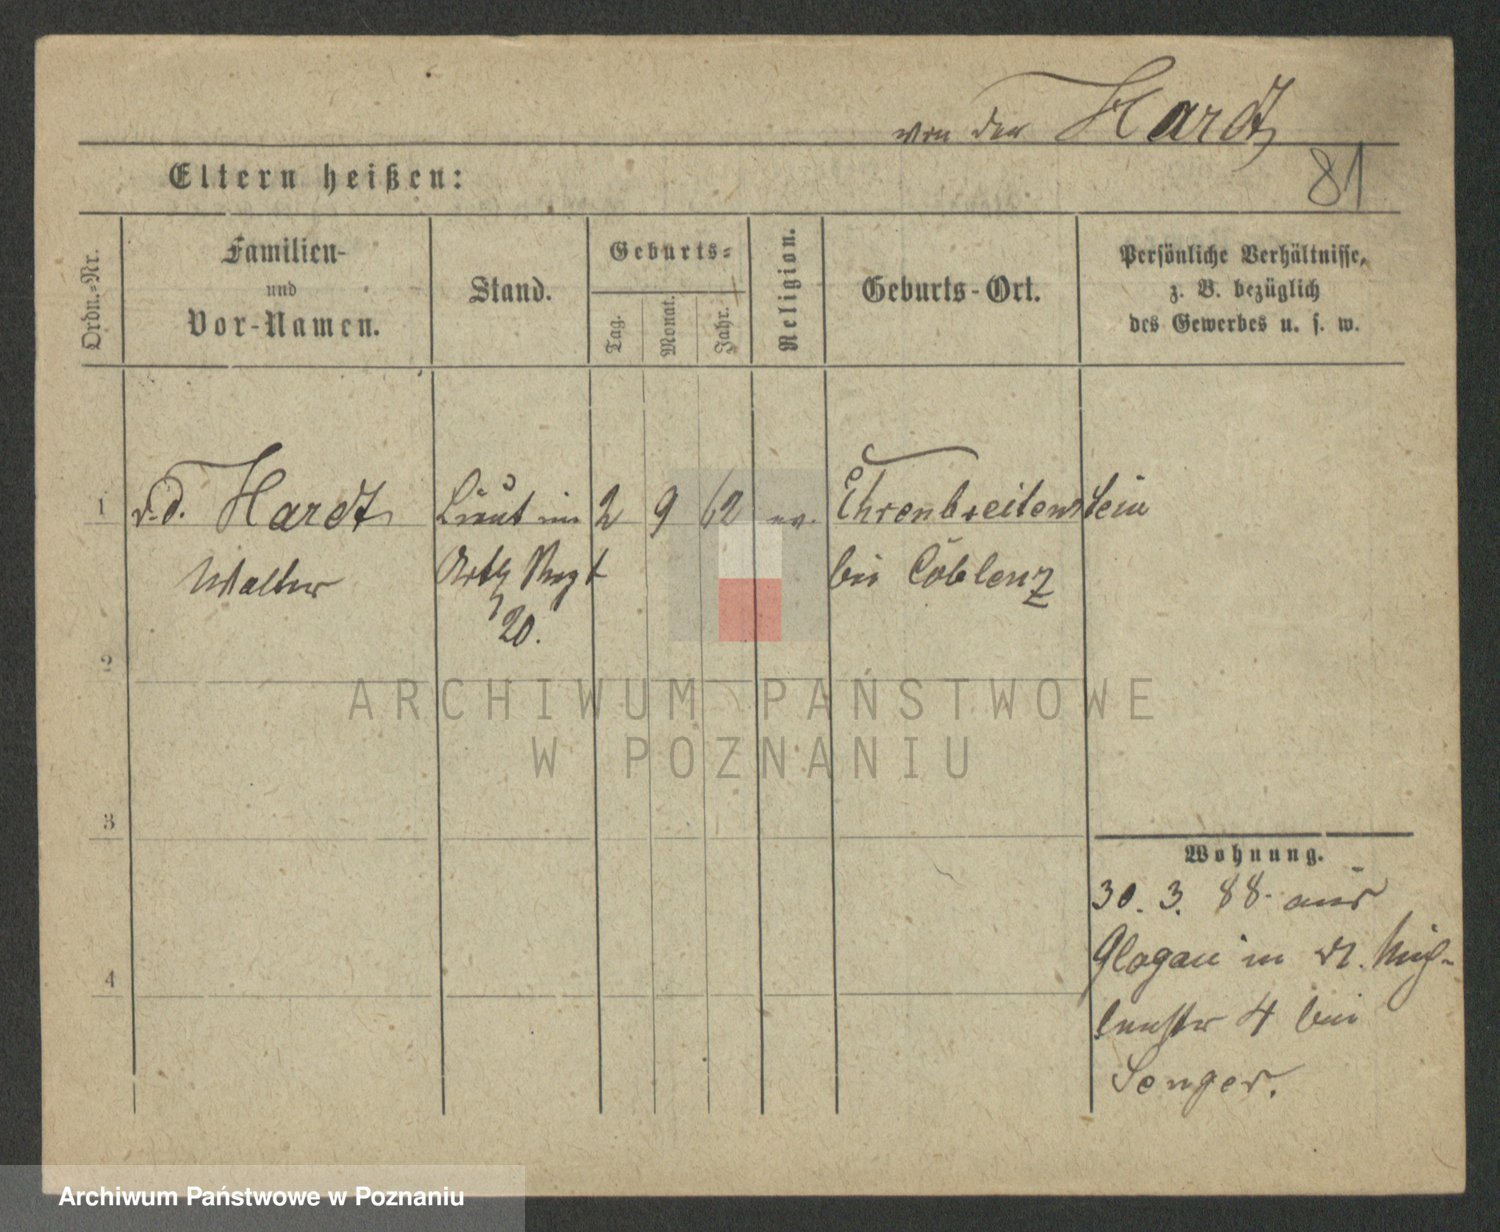 von der Hardt
81
Eltern heißen:
Ordn.-Nr.
Familien-
und
Vor-Namen.
Stand.
Geburts-
Tag.
Monat.
Jahr.
Religion.
Geburts-Ort.
Persönliche Verhältnisse,
z. B. bezüglich
des Gewerbes u. s. w.
1 v. d. Hardt Lieut im 2 9 62 ev. Ehrenbreitenstein
Walter Artl Regt bei Coblenz
20.
2
ARCHIWUM PAŃSTWOWE
W POZNANIU
3
Wohnung.
30. 3. 88. aus
Glogau in kl.
4 bei
4
Senger.
Archiwum Państwowe w Poznaniu